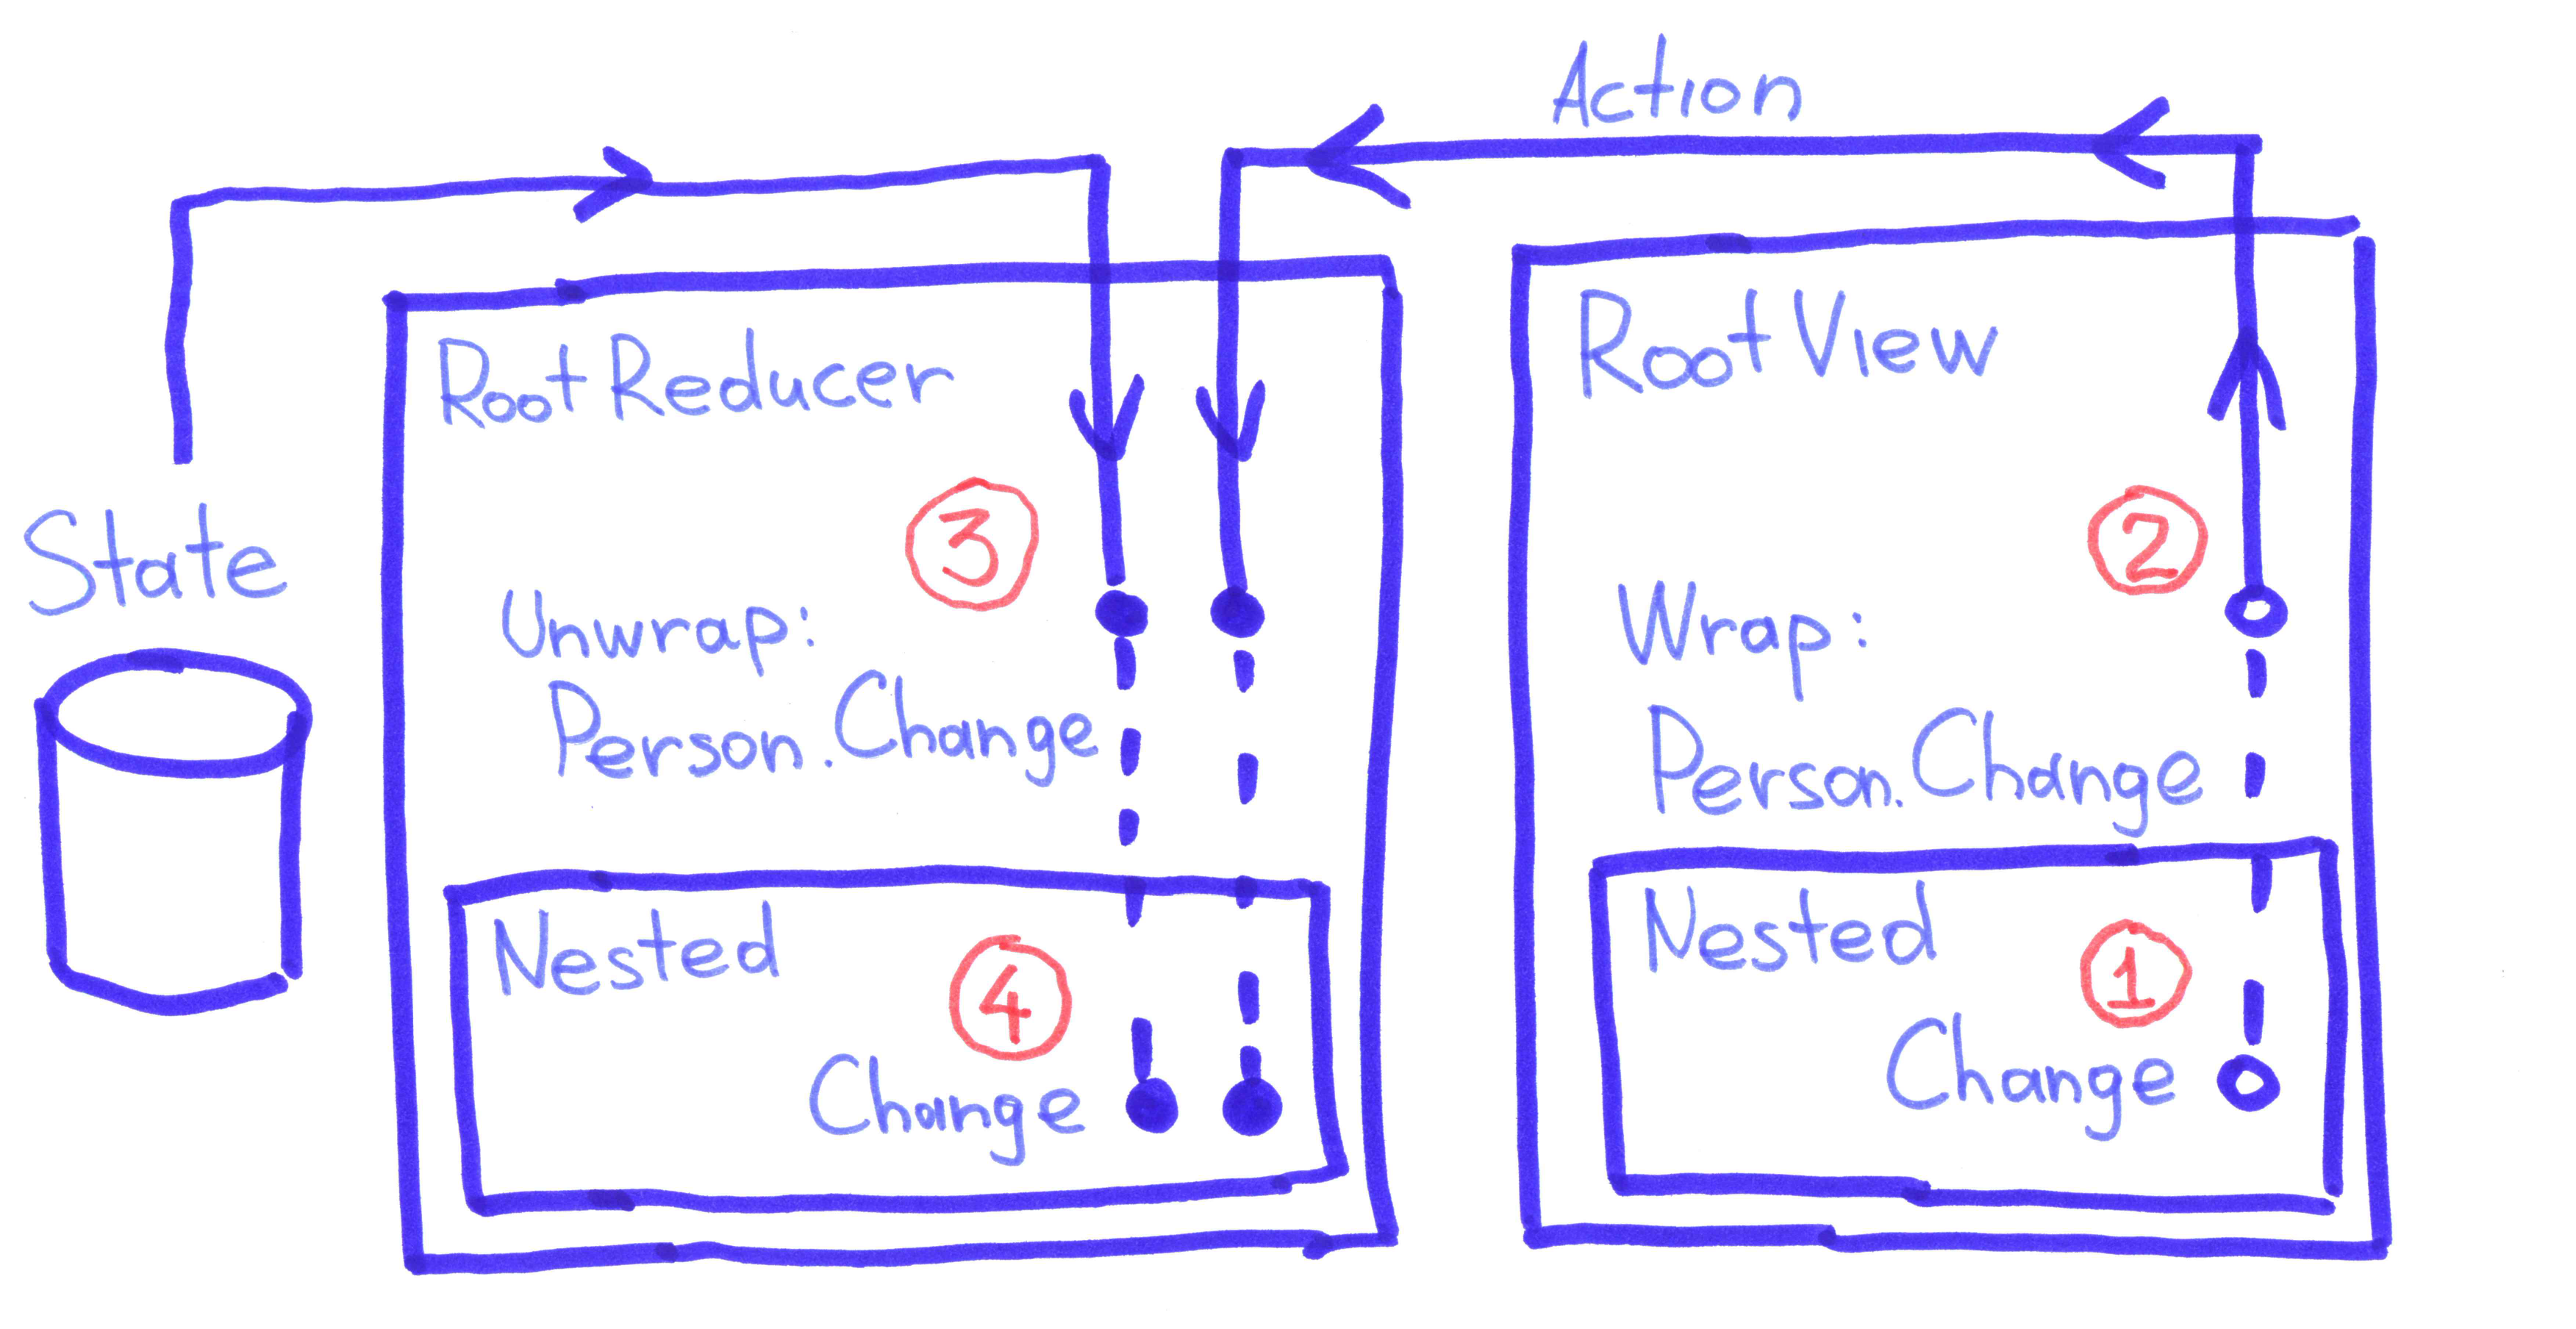 Action
State
Root Reducer
3
Unwrap:
Person.Change
Nested
4
Change
Root View
2
Wrap:
Person.Change
Nested
1
Change